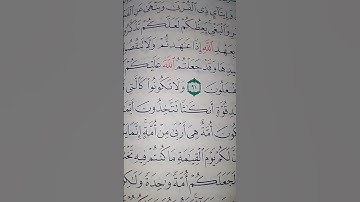 وَإِيتَآيِ ذِي ٱلْقُرْبَىٰ وَيَنْهَىٰ عَنِ
وَٱلْبَغْيِ يَعِظُكُمْ لَعَلَّكُمْ تَذَكَّرُ
بِعَهْدِ ٱللَّهِ إِذَا عَٰهَدتُّمْ وَلَا تَنقُضُو
يدِهَا وَقَدْ جَعَلْتُمُ ٱللَّهَ عَلَيْكُمْ
فْعَلُونَ ٩١ وَلَا تَكُونُوا۟ كَٱلَّتِي
دِ قُوَّةٍ أَنكَٰثًا تَتَّخِذُونَ أَيْمَ
كُونَ أُمَّةٌ هِيَ أَرْبَىٰ مِنْ أُمَّةٍ إِنَّمَا يَ
نَّ لَكُمْ يَوْمَ ٱلْقِيَٰمَةِ مَا كُنتُمْ فِيهِ تَخْ
لَجَعَلَكُمْ أُمَّةً وَٰحِدَةً وَلَٰكِ